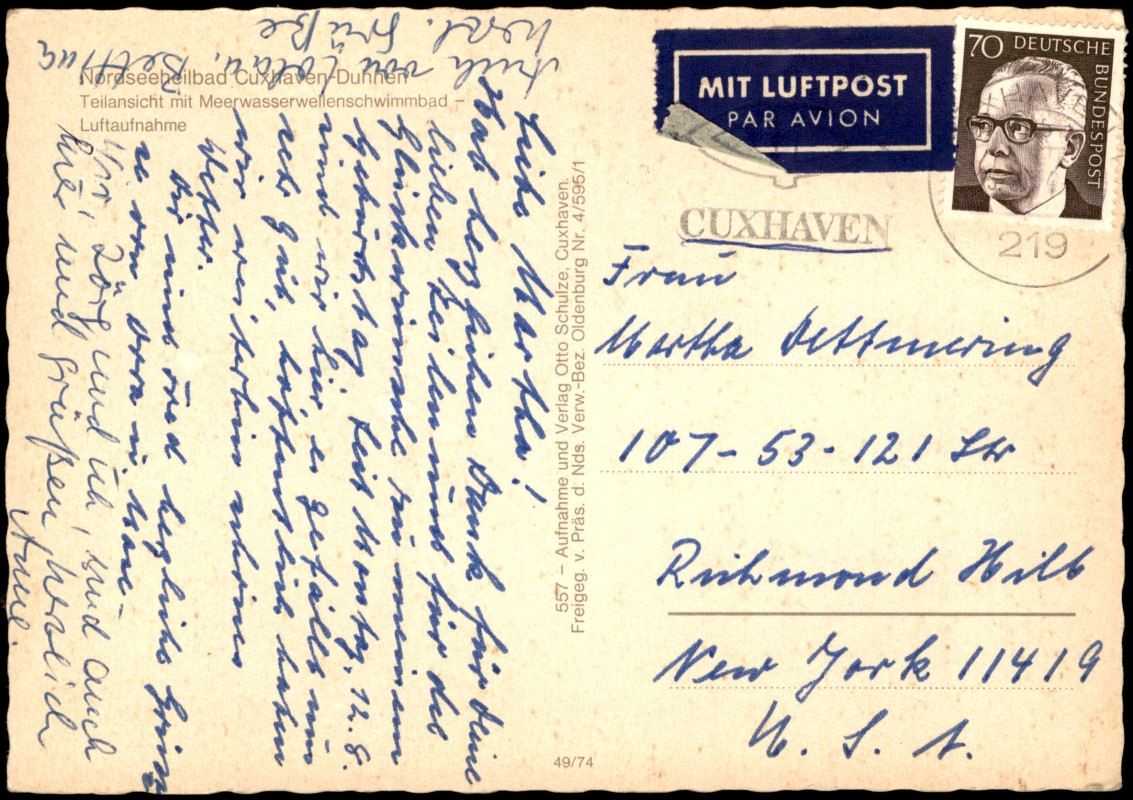 Nordseeheilbad Cuxhaven-Duhnen
Teilansicht mit Meerwasserwellenschwimmbad –
Luftaufnahme
Liebe Martha!
Hab herzlichen Dank für deine
lieben Zeilen und für das
Glückwünsche zu meinem
Geburtstag. Seit Montag, 12.8.
sind wir hier es gefällt uns
sehr gut, hoffentlich haben
wir weiterhin schönes
Wetter.
Dir und Fred herzliche Grüße
von Dora u.
Wir, Jörg und ich, sind auch
hier und grüßen herzlich
Anne.
Auch von
herzl. Grüße
557 – Aufnahme und Verlag Otto Schulze, Cuxhaven.
Freigeg. v. Präs. d. Nds. Verw.-Bez. Oldenburg Nr. 4/595/1
49/74
MIT LUFTPOST
PAR AVION
70 DEUTSCHE
BUNDESPOST
219
CUXHAVEN
Frau
Martha Dettmering
107-53-121 Str
Richmond Hill
New York 11419
U. S. A.